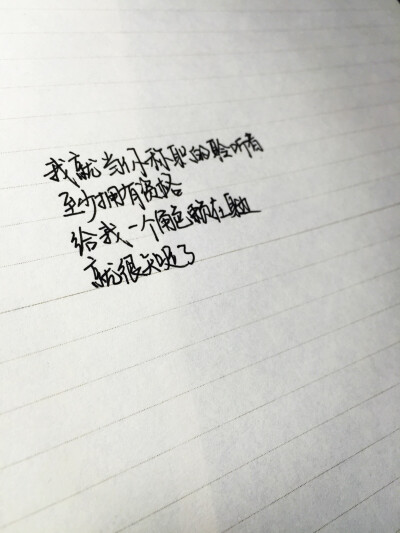 我就当你称职的聆听者
至少拥有资格
给我一个角色赖在身边
就很知足了